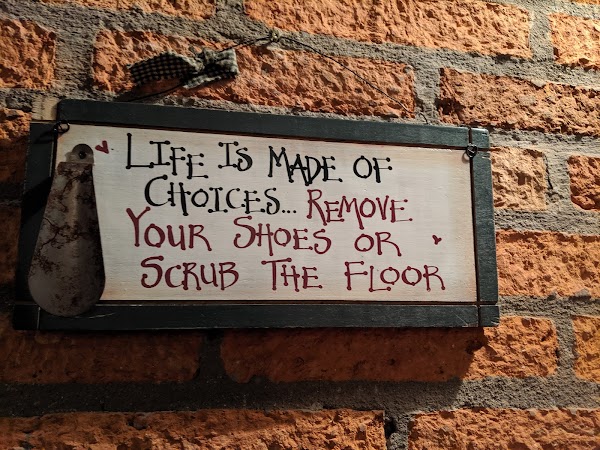 Life Is Made Of
Choices... Remove
Your Shoes Or
Scrub The Floor